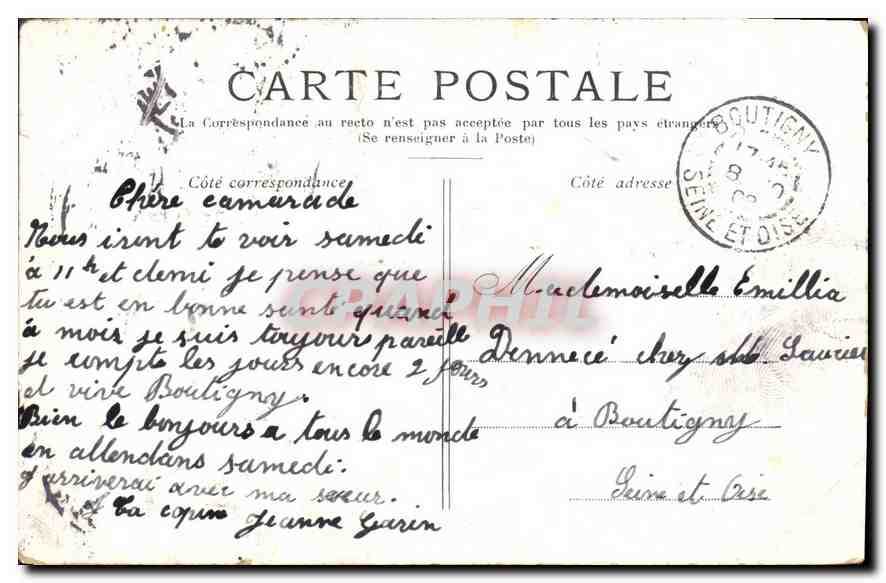 CARTE POSTALE
La Correspondance au recto n'est pas acceptée par tous les pays étrangers
(Se renseigner à la Poste)
Côté correspondance
Côté adresse
BOUTIGNY
SEINE ET OISE
Chère camarade
Nous iront te voir samedi
à 11h et demi je pense que
tu est en bonne santé quand
à mois je suis toujour pareille
je compte les jours encore 2 jours
et vive Boutigny.
Bien le bonjours a tous le monde
en attendans samedi.
J'arriverai avec ma sœur.
Ta copine Jeanne Garin
Mademoiselle Emillia
Dennecé chez
à Boutigny
Seine et Oise
CPAPHIL